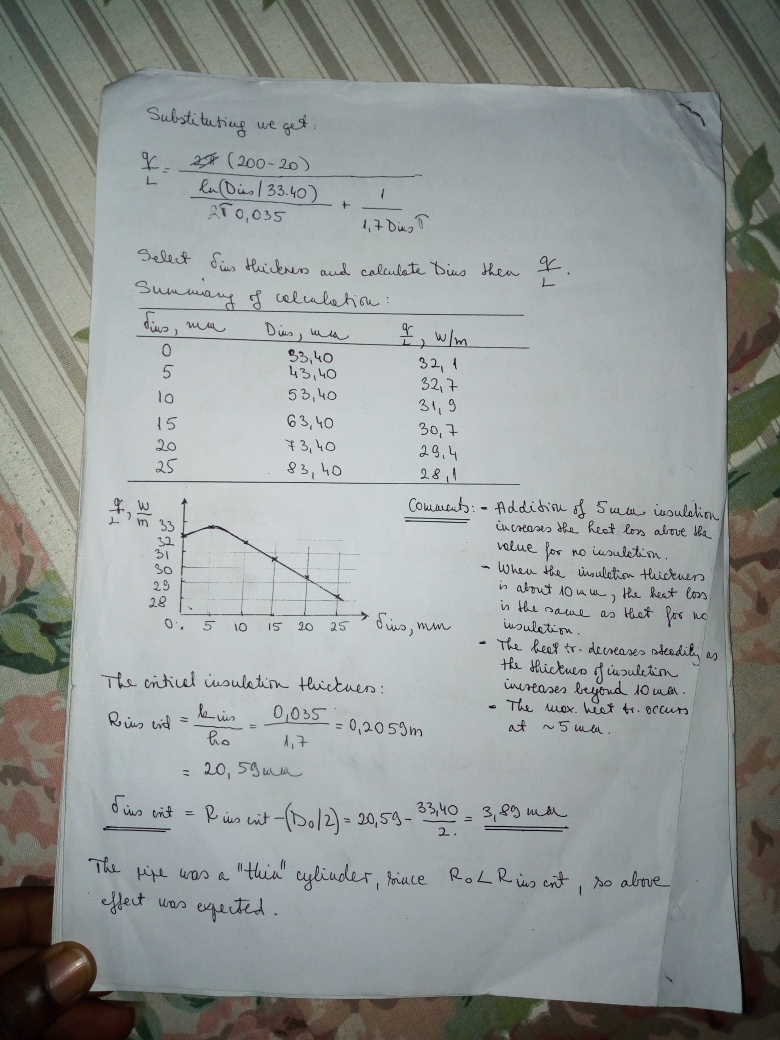 Substituting we get:
q/L = 2π (200-20) / ( ln(Dins/33.40) / 2π 0,035 + 1 / 1,7 Dins π )
Select δins thickness and calculate Dins then q/L.
Summary of calculation:
δins, mm Dins, mm q/L, W/m
0 33,40 32,1
5 43,40 32,7
10 53,40 31,9
15 63,40 30,7
20 73,40 29,4
25 83,40 28,1
q/L, W/m
33
32
31
30
29
28
0. 5 10 15 20 25 δins, mm
Comments: - Addition of 5mm insulation
increases the heat loss above the
value for no insulation.
- When the insulation thickness
is about 10 mm, the heat loss
is the same as that for no
insulation.
- The heat tr. decreases steadily as
the thickness of insulation
increases beyond 10mm.
- The max. heat tr. occurs
at ~5mm.
The critical insulation thickness:
Rins crit = kins/ho = 0,035/1,7 = 0,2059m
= 20,59mm
δins crit = Rins crit - (Do/2) = 20,59 - 33,40/2. = 3,89 mm
The pipe was a "thin" cylinder, since Ro < Rins crit, so above
effect was expected.